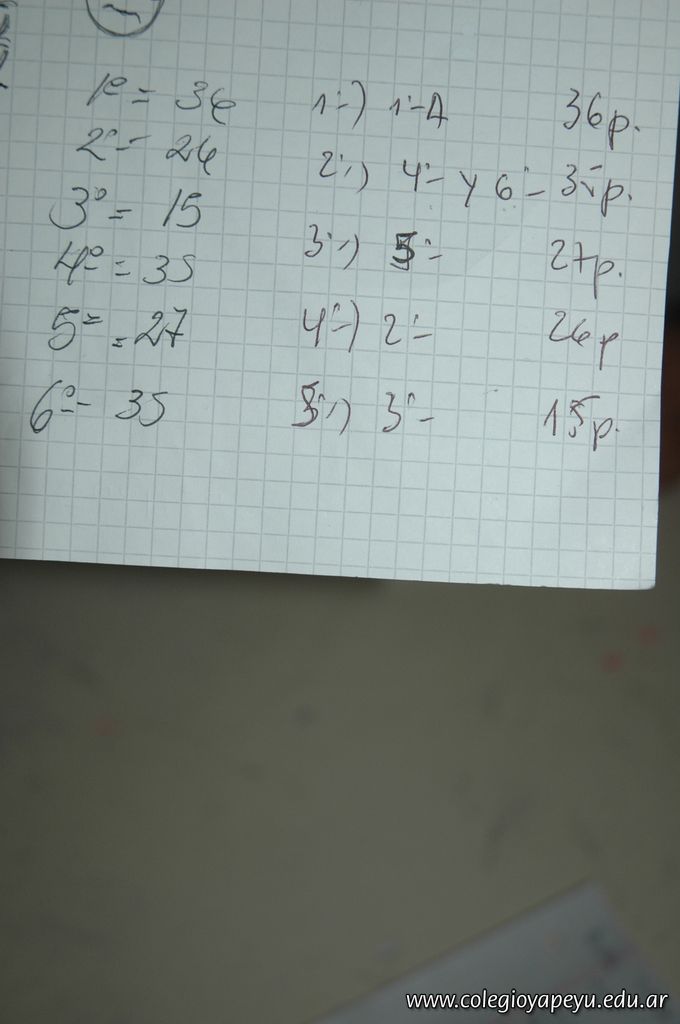 1º = 36
2º - 26
3º = 15
4º = 35
5º = 27
6º - 35
1º-) 1º-A 36p.
2º-) 4º- y 6º- 35p.
3º-) 5º- 27p.
4º-) 2º- 26p
5º-) 3º- 15p.
www.colegioyapeyu.edu.ar